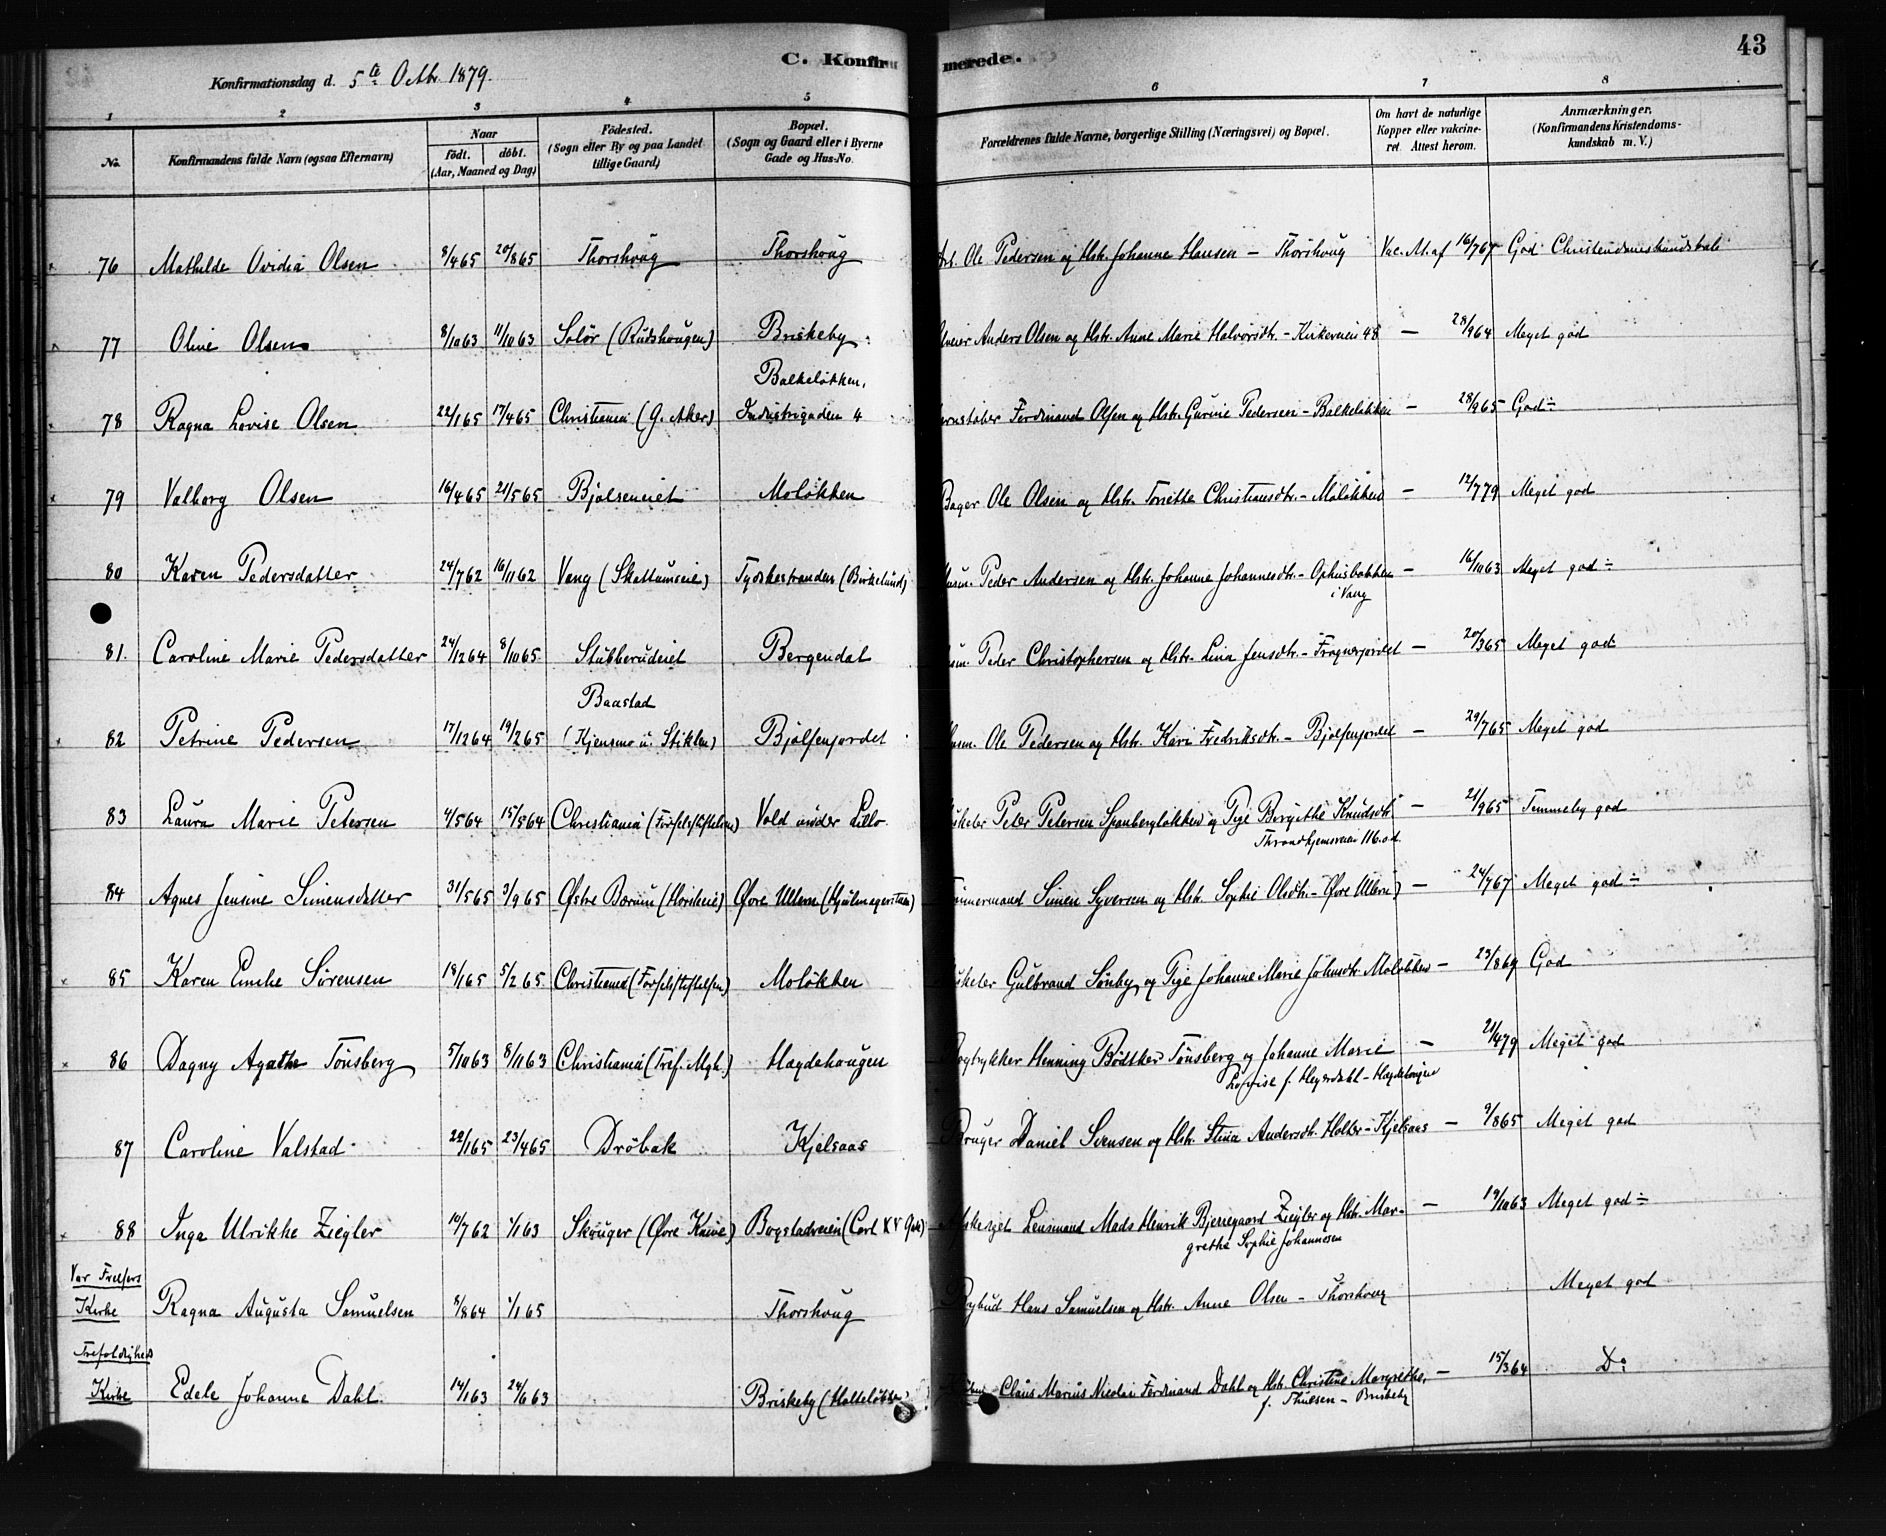 C. Konfirmerede.
43
Konfirmationsdag d. 5te Octbr. 1879.
1 2 3 4 5 6 7 8
No. Konfirmandens fulde Navn (ogsaa Efternavn) Naar födt. döbt. (Aar, Maaned og Dag) Födested. (Sogn eller By og paa Landet tillige Gaard) Bopæl. (Sogn og Gaard eller i Byerne Gade og Hus-No. Forældrenes fulde Navne, borgerlige Stilling (Næringsvei) og Bopæl. Om havt de naturlige Kopper eller vakcineret. Attest herom. Anmærkninger. (Konfirmandens Kristendomskundskab m. V.)
76 Mathilde Ovidia Olsen 8/4 65 20/8 65 Thorshoug Thorshoug Ole Pedersen og Hstr. Johanne Hansen – Thorshoug Vac. At. af 16/7 67 God Christendomskundskab
77 Oline Olsen 8/10 63 11/10 63 Solør (Rudshougen) Briskeby Anders Olsen og Hstr. Anne Marie Halvorsdtr. – Kirkeveien 48 — 28/9 64 Meget god
Balkeløkken,
78 Ragna Lovise Olsen 22/1 65 17/4 65 Christiania (G. Aker) Industrigaden 4 Ferdinand Olsen og Hstr. Gurine Pedersen – Balkeløkken — 28/9 65 God ÷
79 Valborg Olsen 16/4 65 21/5 65 Bjølseneiet Moløkken Bager Ole Olsen og Hstr. Torette Christiansdtr. – Moløkken — 12/7 79 Meget god
80 Karen Pedersdatter 24/7 62 16/11 62 Vang (Skattumseie) Tyskestranden (Birkelund) Husm. Peder Andersen og Hstr. Johanne Johannesdtr. – Ophusbakken — 16/10 63 Meget god ÷
i Vang
81. Caroline Marie Pedersdatter 24/12 64 8/10 65 Stubberudeiet Bergendal Husm. Peder Christophersen og Hstr. Lina Jensdtr. – Frognerjordet — 20/3 65 Meget god
Baastad
82 Petrine Pedersen 17/12 64 19/2 65 (Kjensmo u. Stiklen) Bjølsenjordet Husm. Ole Pedersen og Hstr. Kari Fredriksdtr. – Bjølsenjordet — 29/7 65 Meget god
83 Laura Marie Petersen 4/5 64 15/5 64 Christiania (Fødselsstiftelsen) Vold under Lillo Peter Petersen Spanbergløkken og Pige Birgithe Knudsdtr. — 21/9 65 Temmelig god
Throndhjemsveien 116.a.d.
84 Agnes Jensine Simensdatter 31/5 65 3/9 65 Østre Bærum (Horskeie) Øvre Ullern (Hjulmagerstuen) Tømmermand Simen Syversen og Hstr. Sophie Olsdtr. – Øvre Ullern) — 24/7 67 Meget god ÷
85 Karen Emilie Sørensen 18/1 65 5/2 65 Christiania (Fødselsstiftelsen) Moløkken Gulbrand Sønby og Pige Johanne Marie Johnsdtr. Moløkken — 23/8 69 God
86 Dagny Agathe Tønsberg 5/10 63 8/11 63 Christiania (Tref. Mgh.) Hagdehaugen Bogtrykker Henning Bødtker Tønsberg og Johanne Marie — 21/4 79 Meget god
Lovise f. Heyerdahl – Hægdehougen
87 Caroline Valstad 22/1 65 23/4 65 Drøbak Kjelsaas Bruger Daniel Svensen og Hstr. Stina Andersdtr. Holter – Kjelsaas — 9/8 65 Meget god
88 Inga Ulrikke Ziegler 10/7 62 1/1 63 Skouger (Øvre Knive) Bogstadveien (Carl XV Gade) Lensmand Mads Henrik Bjerregaard Ziegler og Hstr. Mar- — 19/10 63 Meget god ÷
grethe Sophie Johannesen
Vor Frelsers
Kirke Ragna Augusta Samuelsen 8/8 64 1/1 65 Thorshoug Hans Samuelsen og Hstr. Anne Olsen – Thorshoug Meget god
Trefoldigheds
Kirke Edele Johanne Dahl 14/1 63 24/6 63 Briskeby (Holteløkken) Claus Marius Nicolai Ferdinand Dahl og Hstr. Christine Margrethe, — 15/3 64 Do
f. Thulsen – Briskeby